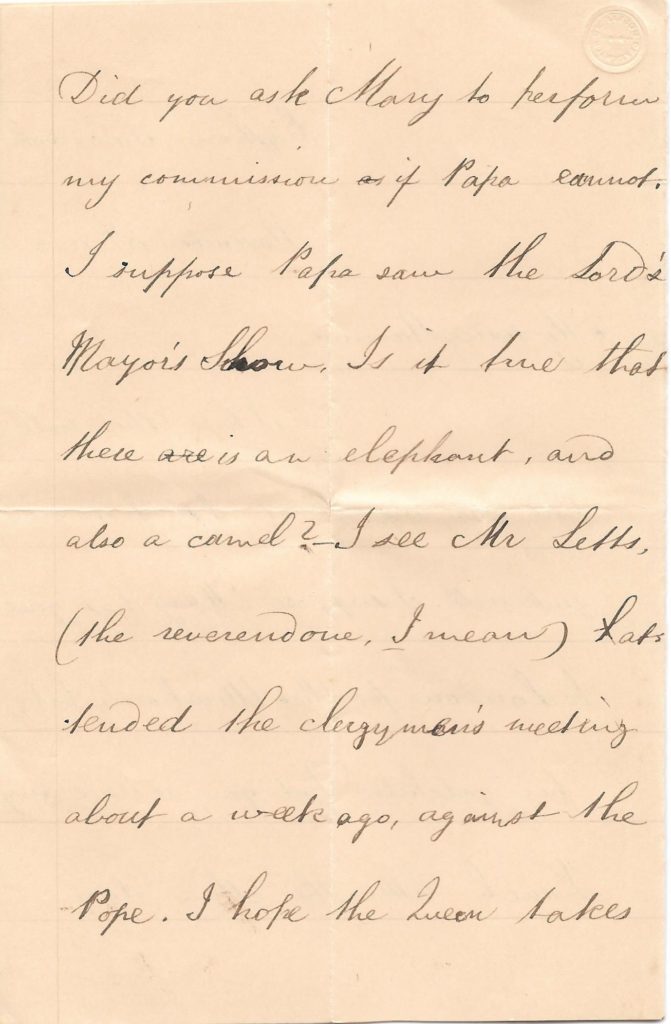 Did you ask Mary to perform
my commission as if Papa cannot.
I suppose Papa saw the Lord's
Mayor's Show. Is it true that
there are is an elephant, and
also a camel? – I see Mr Letts,
(the reverend one, I mean) at-
tended the clergymen's meeting
about a week ago, against the
Pope. I hope the Queen takes